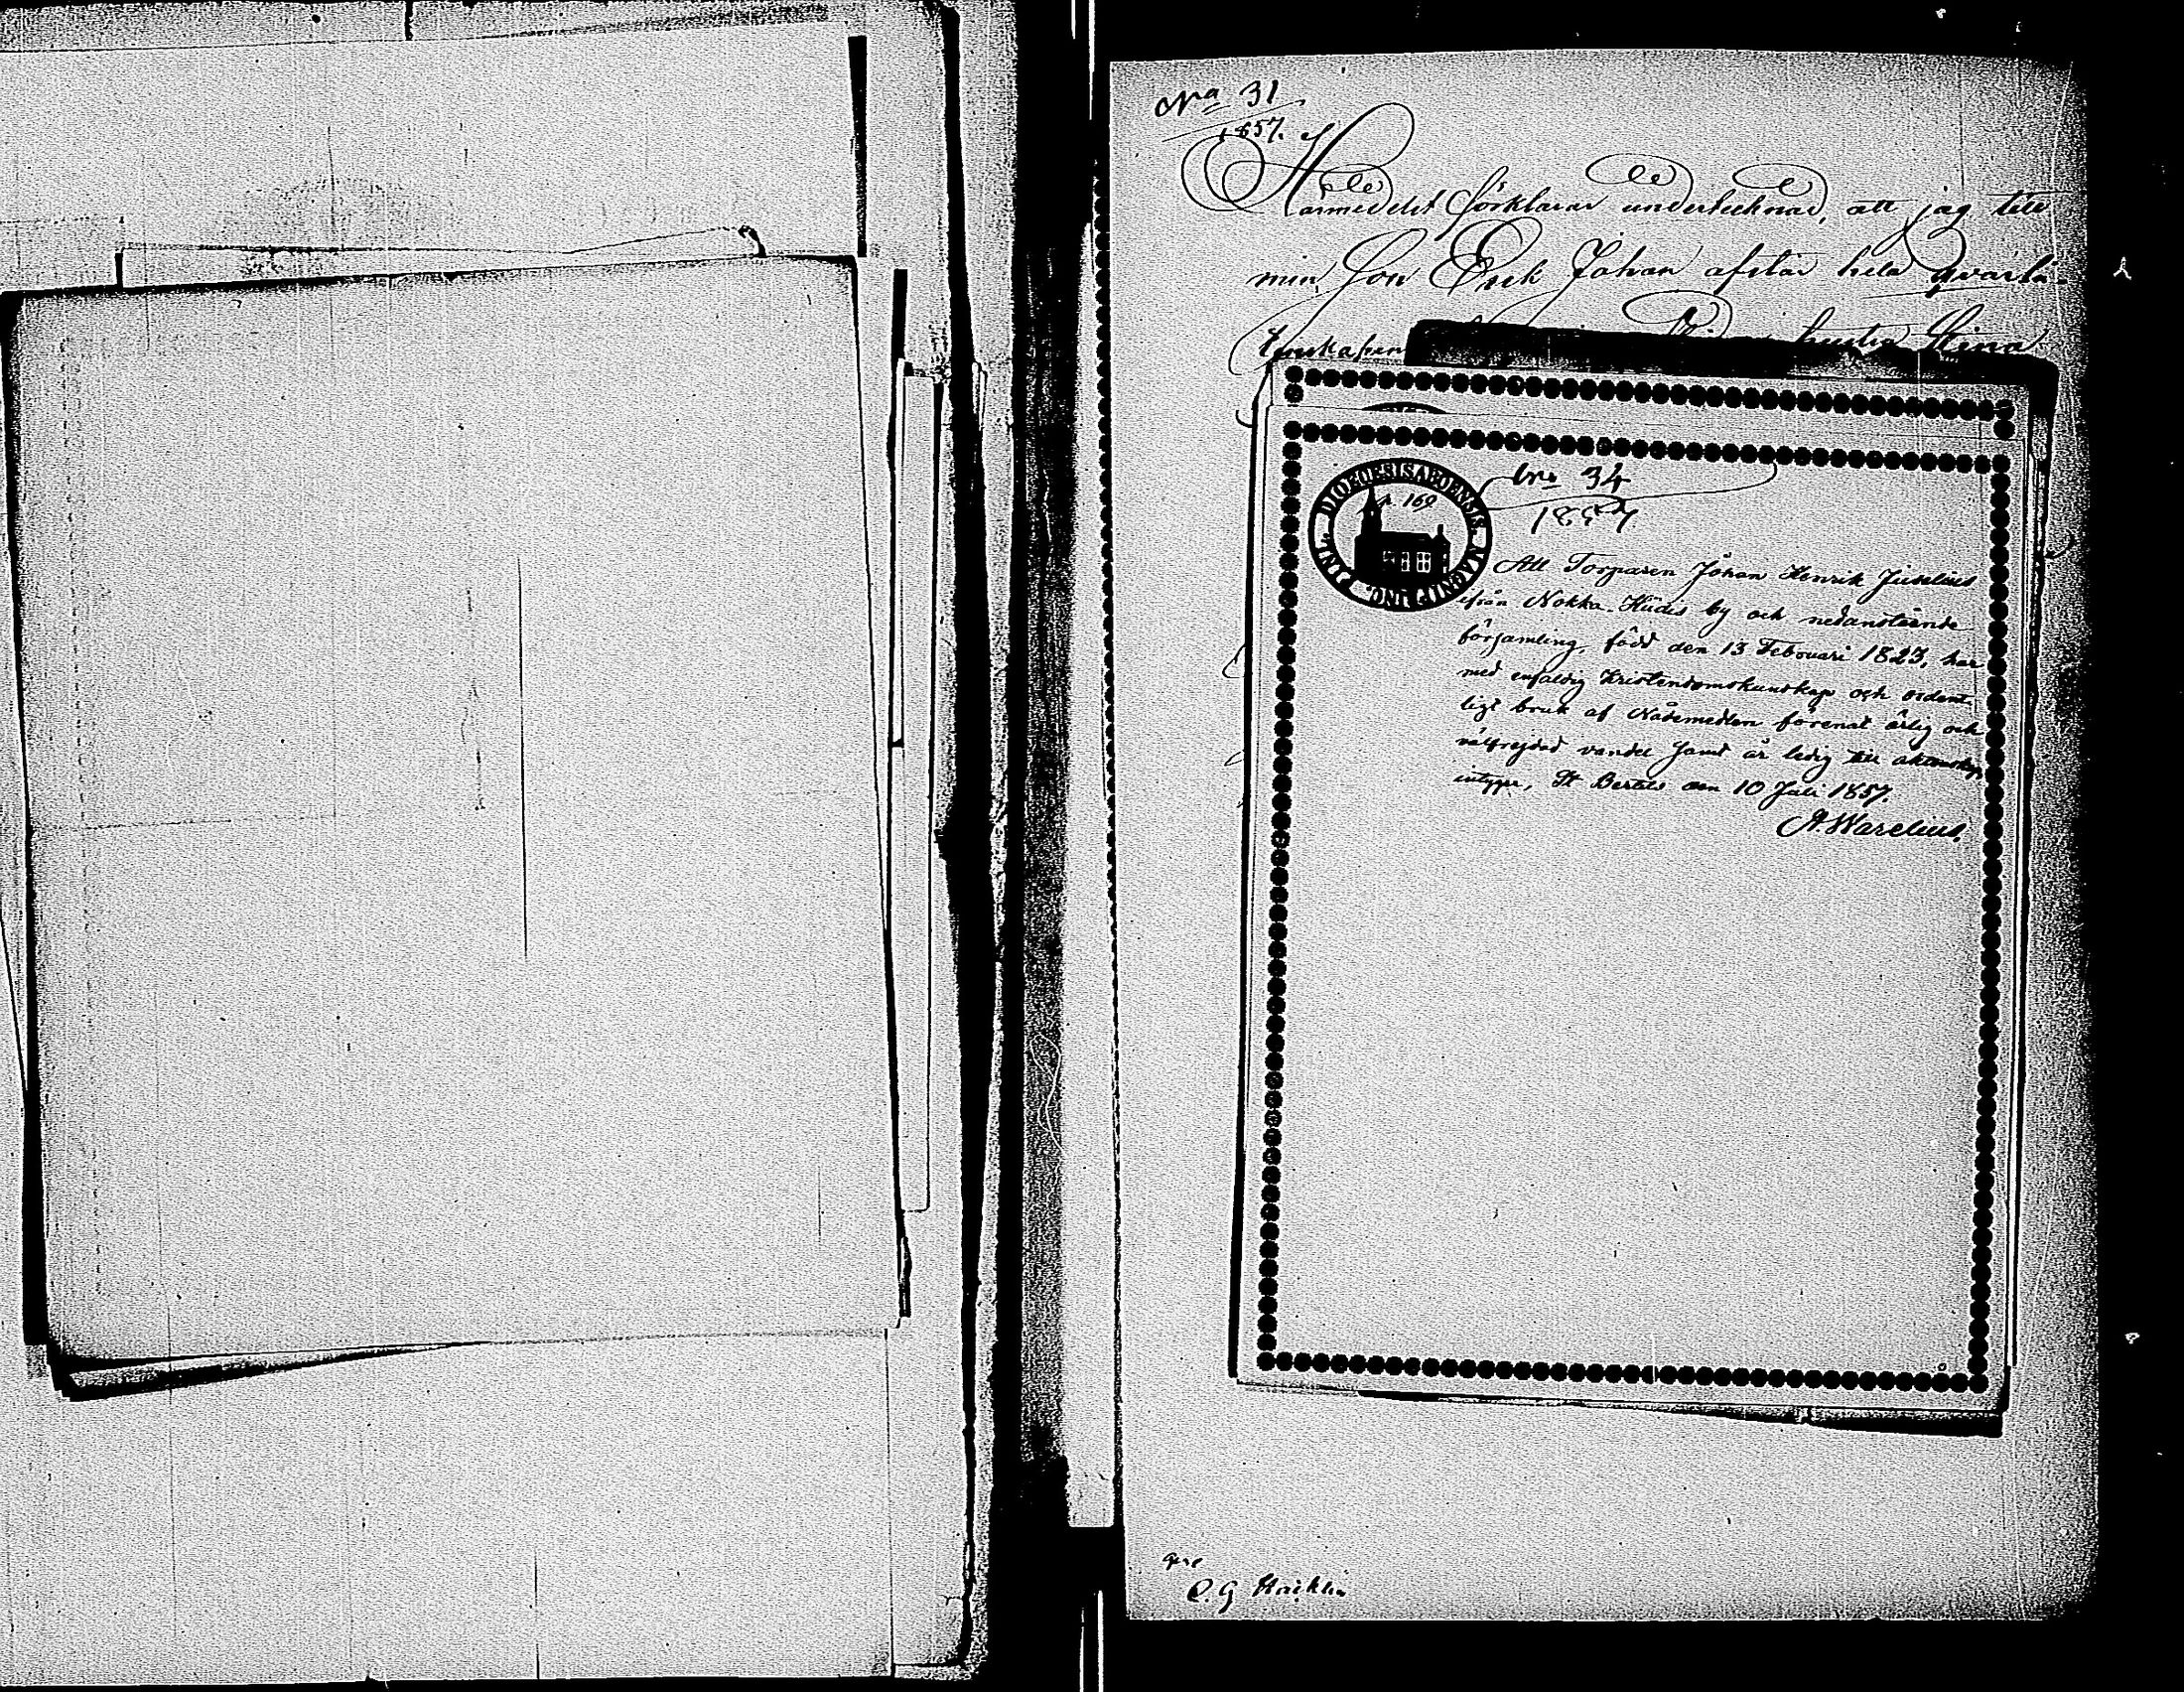 No 31
1857.
Härmedelst förklarar undertecknad, att jag till
min Son Erik Johan afstår hela qvarlå-
hustru Stina
No 34
1857
DIOECESIS ABOENSIS MAGNI PRINC. FINL.
169
Att Torparen Johan Henrik Juselius
ifrån Nokka-Hüdis by och nedanstående
församling, född den 13 Februari 1823, har
med enfaldig Kristendomskunskap och ordent-
ligt bruk af Nådemedlen förenat ärlig och
välfrejdad vandel samt är ledig till äktenskap
intygar, St Bertils den 10 Juli 1857.
A. Warelius.
C. G